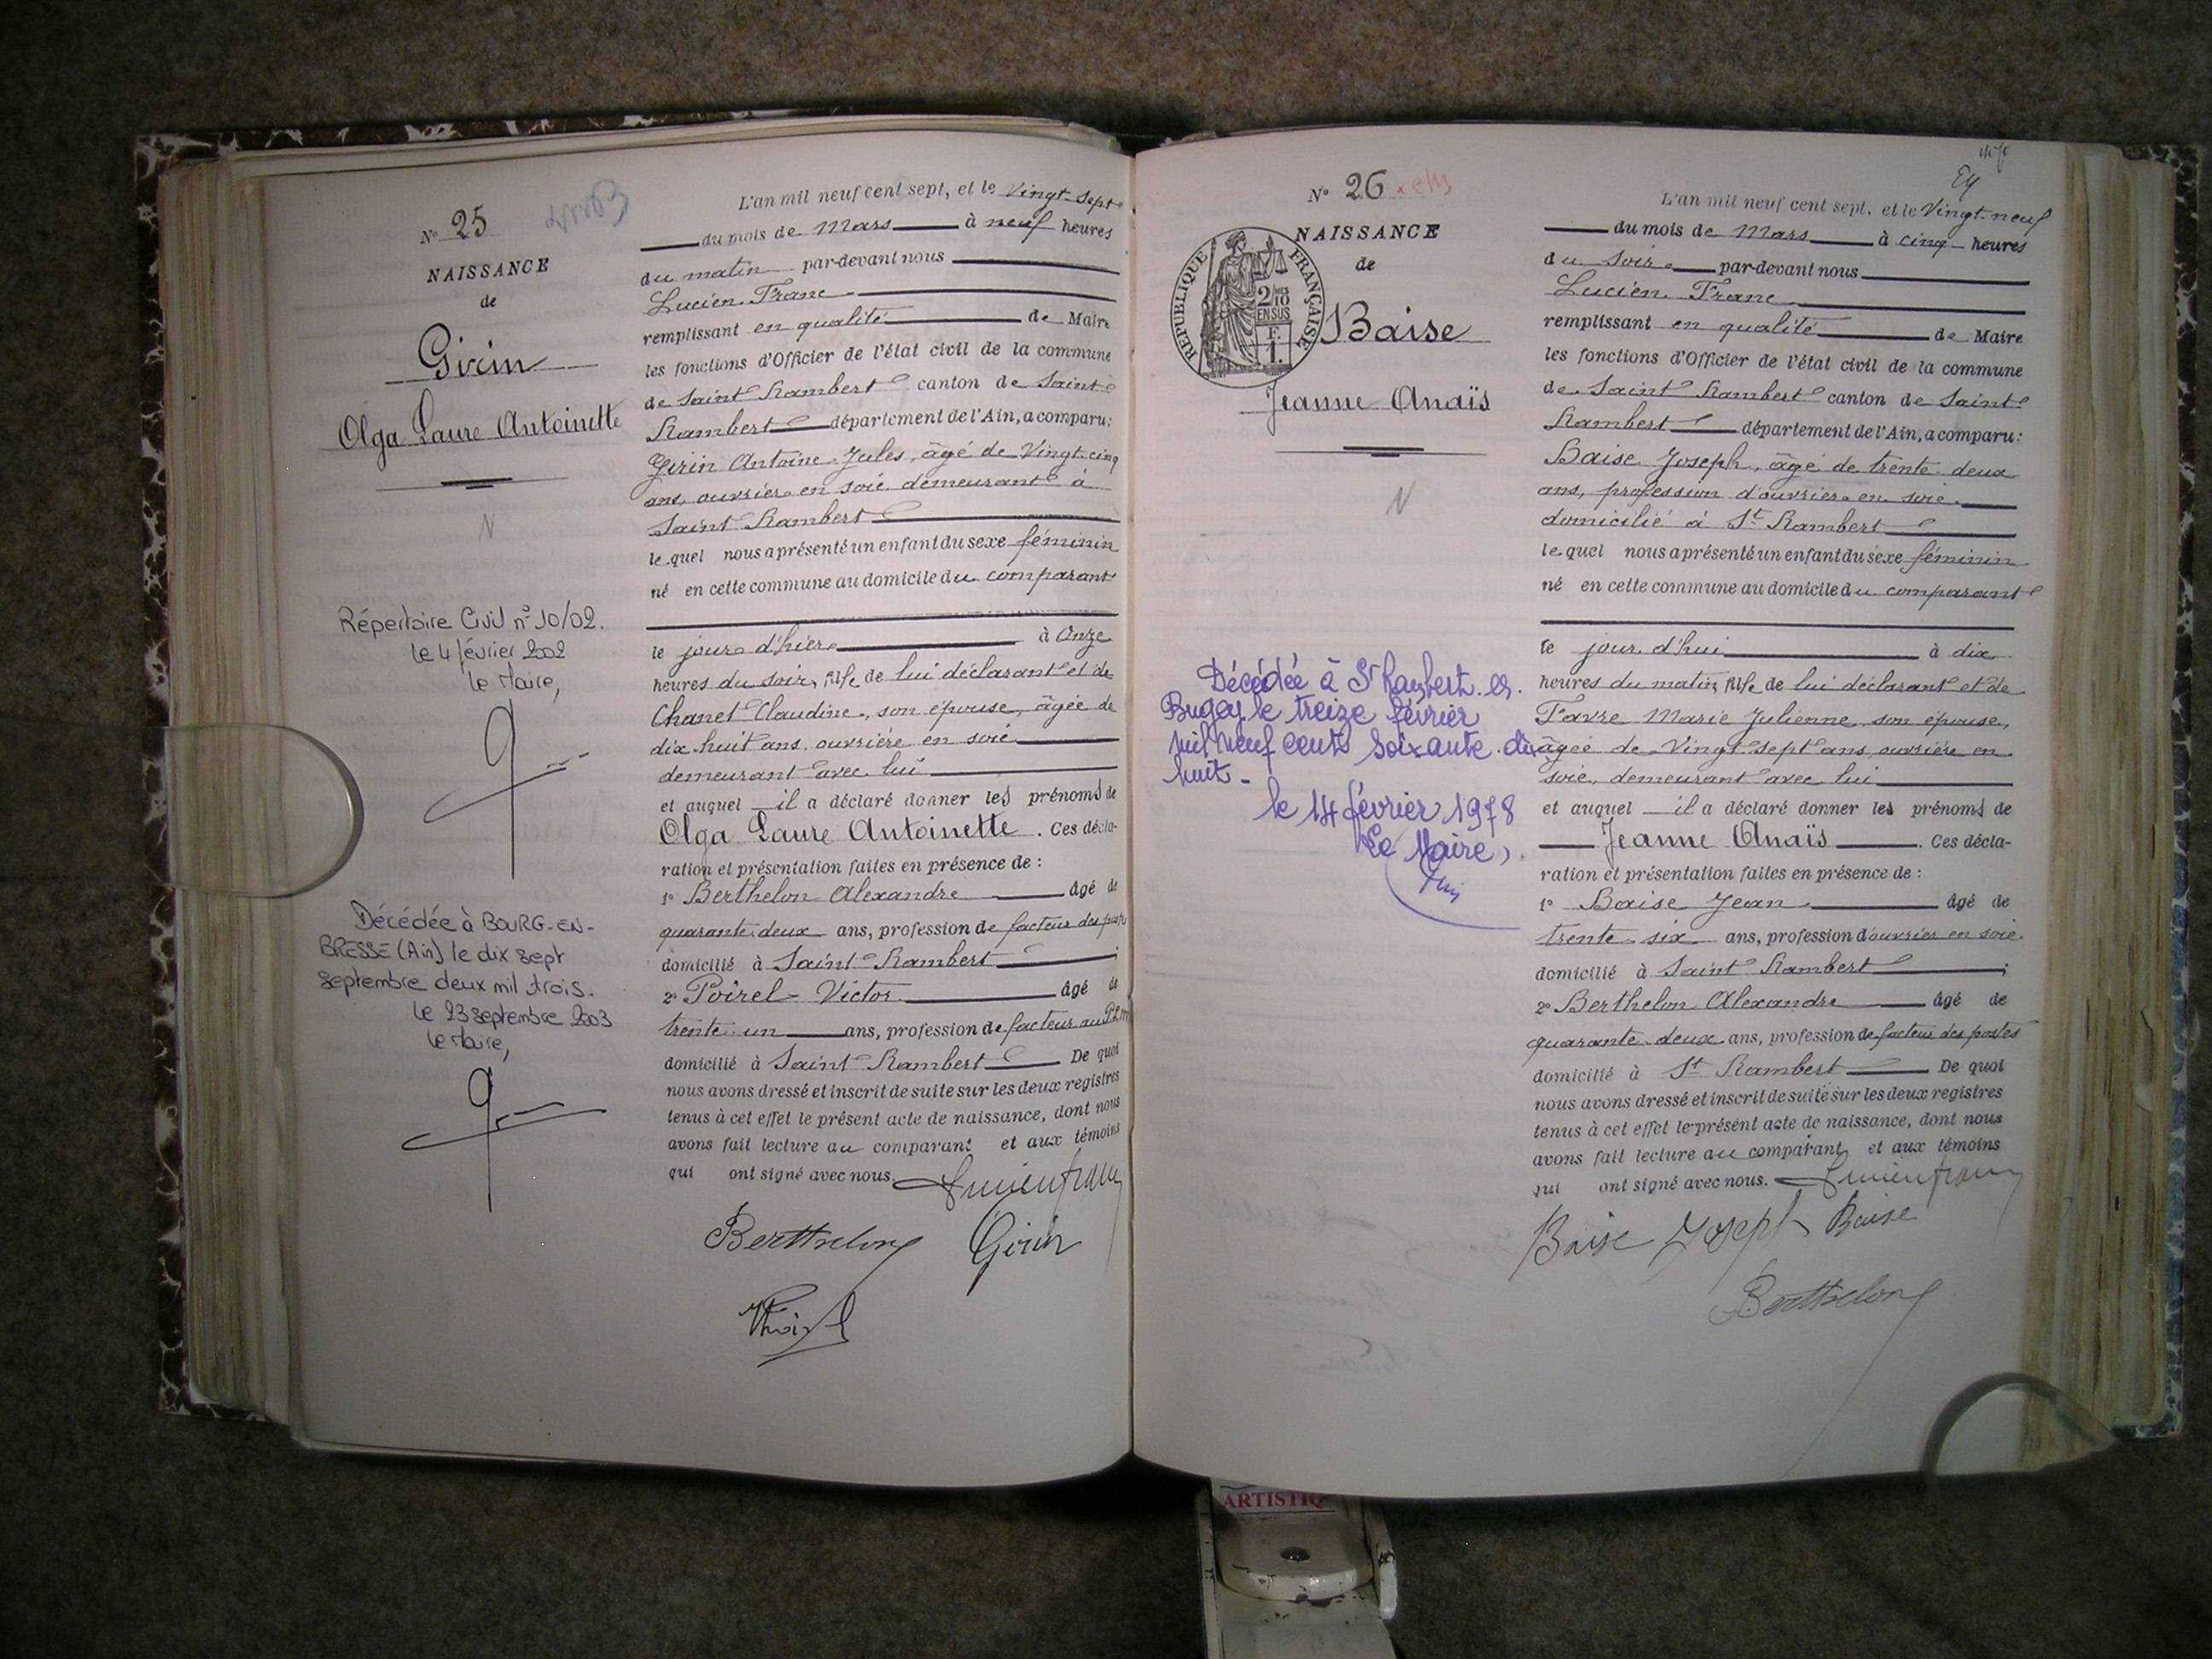 N° 25
NAISSANCE
de
Girin
Olga Laure Antoinette
N
Répertoire Civil n° 10/02.
le 4 février 2002
le Maire,
Décédée à BOURG-EN-
BRESSE (Ain) le dix sept
septembre deux mil trois.
le 23 septembre 2003
le Maire,
L'an mil neuf cent sept, et le Vingt-sept
du mois de Mars à neuf heures
du matin par-devant nous
Lucien Franc
remplissant en qualité de Maire
les fonctions d'Officier de l'état civil de la commune
de Saint Rambert canton de Saint
Rambert département de l'Ain, a comparu:
Girin Antoine Jules, âgé de Vingt-cinq
ans, ouvrier en soie demeurant à
Saint Rambert
lequel nous a présenté un enfant du sexe féminin
né en cette commune au domicile du comparant
le jour d'hier à Onze
heures du soir, fille de lui déclarant et de
Chanet Claudine, son épouse, âgée de
dix huit ans, ouvrière en soie
demeurant avec lui
et auquel il a déclaré donner les prénoms de
Olga Laure Antoinette. Ces décla-
ration et présentation faites en présence de :
1° Berthelon Alexandre âgé de
quarante deux ans, profession de facteur des postes
domicilié à Saint Rambert ;
2° Poirel Victor âgé de
trente un ans, profession de facteur au P.L.M
domicilié à Saint Rambert De quoi
nous avons dressé et inscrit de suite sur les deux registres
tenus à cet effet le présent acte de naissance, dont nous
avons fait lecture au comparant et aux témoins
qui ont signé avec nous. Lucien Franc
Berthelon Girin
Poirel
N° 26
NAISSANCE
de
RÉPUBLIQUE FRANÇAISE
2/10
EN SUS
F.
1.
Baise
Jeanne Anaïs
N
Décédée à St Rambert-en-
Bugey le treize février
mil neuf cents soixante-dix
huit -
le 14 février 1978
Le Maire,
24
L'an mil neuf cent sept, et le Vingt-neuf
du mois de Mars à cinq heures
du soir par-devant nous
Lucien Franc
remplissant en qualité de Maire
les fonctions d'Officier de l'état civil de la commune
de Saint Rambert canton de Saint
Rambert département de l'Ain, a comparu:
Baise Joseph, âgé de trente deux
ans, profession d'ouvrier en soie
domicilié à St Rambert
lequel nous a présenté un enfant du sexe féminin
né en cette commune au domicile du comparant
le jour d'hui à dix
heures du matin, fille de lui déclarant et de
Favre Marie Julienne, son épouse,
âgée de Vingt sept ans, ouvrière en
soie, demeurant avec lui
et auquel il a déclaré donner les prénoms de
Jeanne Anaïs. Ces décla-
ration et présentation faites en présence de :
1° Baise Jean âgé de
trente six ans, profession d'ouvrier en soie
domicilié à Saint Rambert ;
2° Berthelon Alexandre âgé de
quarante deux ans, profession de facteur des postes
domicilié à St Rambert De quoi
nous avons dressé et inscrit de suite sur les deux registres
tenus à cet effet le présent acte de naissance, dont nous
avons fait lecture au comparant et aux témoins
qui ont signé avec nous. Lucien Franc
Baise Joseph Baise
Berthelon
ARTISTIQ